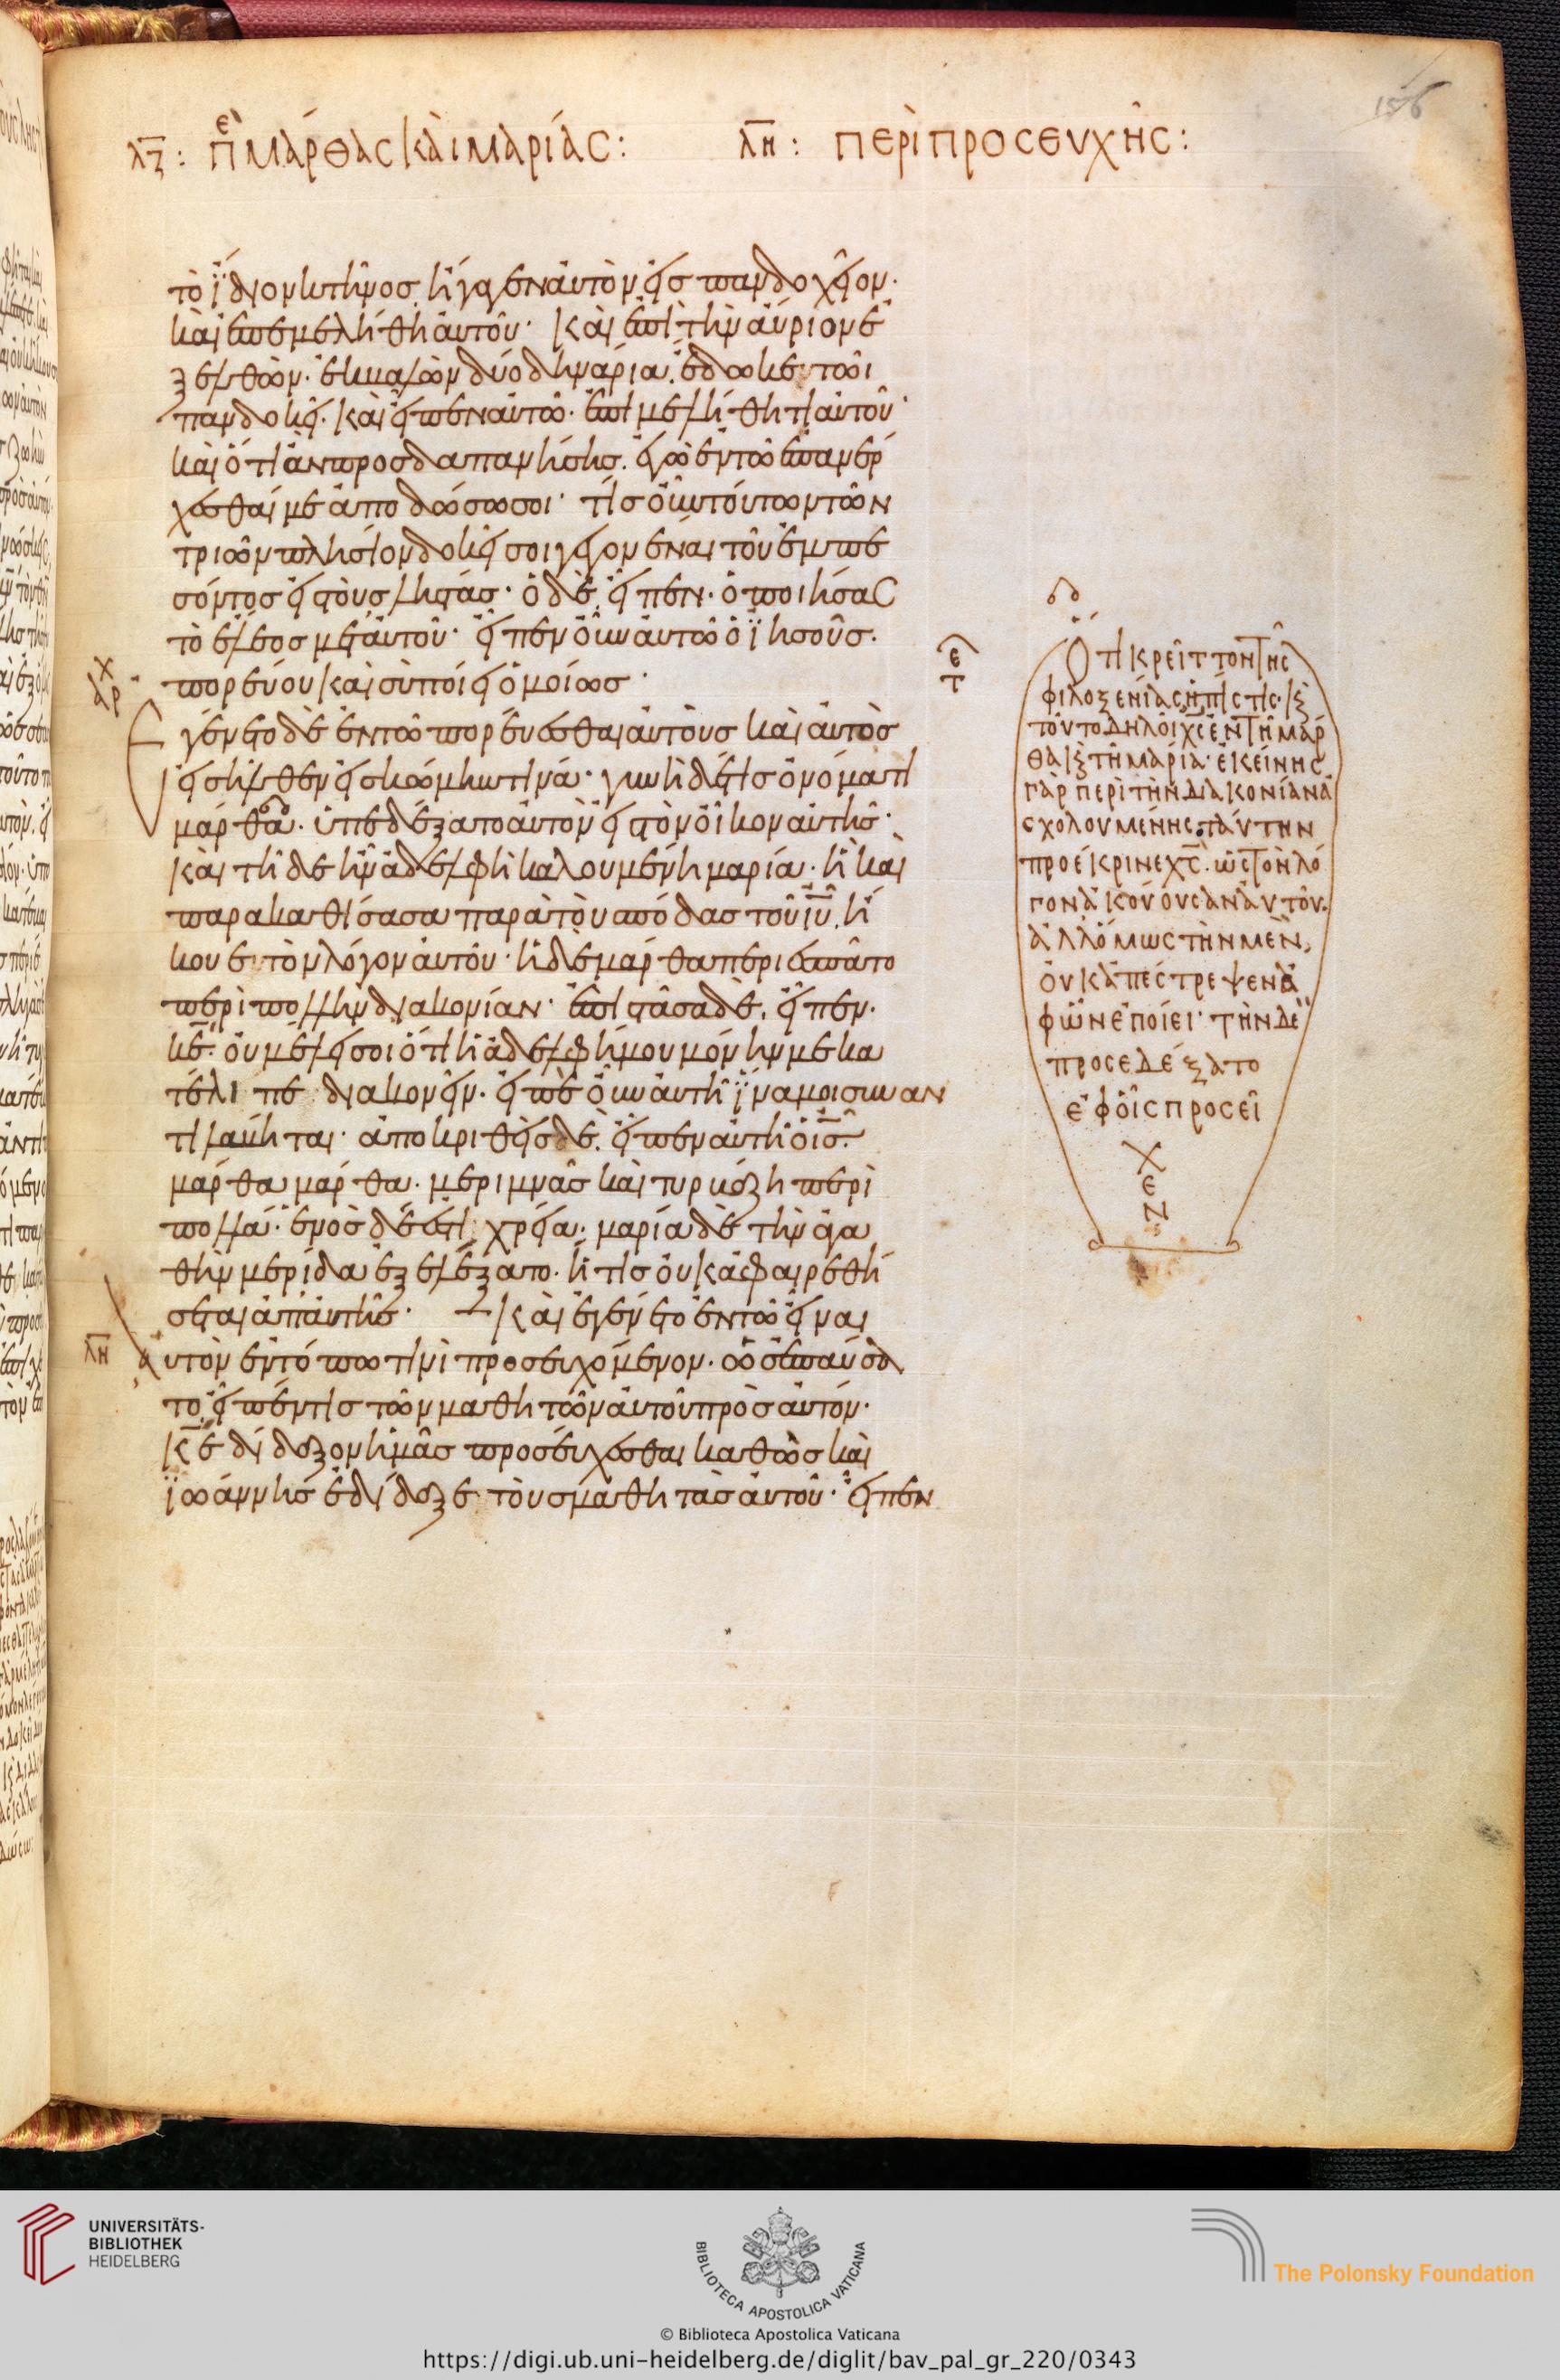 156
λζ : πε Μάρθας καὶ Μαρίας : λη : Περὶ προσευχῆς :
τὸ ἴδιον κτῆνος ἤγαγεν αὐτὸν εἰς πανδοχεῖον·
καὶ ἐπεμελήθη αὐτοῦ· καὶ ἐπὶ τὴν αὔριον ἐ
ξελθὼν· ἐκβαλὼν δύο δηνάρια. ἔδωκεν τῶι
πανδοκεῖ· καὶ εἶπεν αὐτῶ· ἐπιμελήθητι αὐτοῦ·
καὶ ὅτι ἂν προσδαπανήσης. ἐγὼ ἐν τῶ ἐπανέρ
χεσθαί με ἀποδώσω σοι· τίς οὖν τούτων τῶν
τριῶν πλησίον δοκεῖ σοι γεγονέναι τοῦ ἐμπε
σόντος εἰς τοὺς ληστάς· ὁ δὲ, εἶπεν· ὁ ποιήσας
τὸ ἔλεος μετ αὐτοῦ· εἶπεν οὖν αὐτῶ ὁ ἰησοῦς.
πορεύου καὶ σὺ ποίει ὁμοίως·
χ
αρ
Εγένετο δὲ ἐν τῶ πορεύεσθαι αὐτοὺς καὶ αὐτὸς
εἰσῆλθεν εἰς κώμην τινά· γυνὴ δέ τις ὀνόματι
μάρθα. ὑπεδέξατο αὐτὸν εἰς τὸν οἶκον αὐτῆς·
καὶ τῆδε ἦν ἀδελφὴ καλουμένη μαρία· ἣ καὶ
παρακαθίσασα παρὰ τοὺς πόδας τοῦ ιυ, ἤ
κουεν τὸν λόγον αὐτοῦ· ἡ δὲ μάρθα περιεσπᾶτο
περὶ πολλὴν διακονίαν· ἐπιστᾶσα δὲ, εἶπεν·
κε. οὐ μέλει σοι ὅτι ἡ ἀδελφή μου μόνην με κα
τέλιπε διακονεῖν· εἰπὲ οὖν αὐτῆ ἵνα μοι συναν
τιλάβηται· ἀποκριθεὶς δὲ, εἶπεν αὐτῆ ὁ ις·
μάρθα μάρθα· μεριμνᾶς καὶ τυρβάζη περὶ
πολλά· ἑνὸς δέ ἐστι χρεία· μαρία δὲ τὴν ἀγα
θὴν μερίδα ἐξελέξατο· ἥτις οὐκ ἀφαιρεθή
σεται ἀπ αὐτῆς· καὶ ἐγένετο ἐν τῶ εἶναι
λη
αὐτὸν ἐν τόπω τινὶ προσευχόμενον· ὡς ἐπαύσα
το, εἶπέν τις τῶν μαθητῶν αὐτοῦ πρὸς αὐτόν·
κε δίδαξον ἡμᾶς προσεύχεσθαι καθὼς καὶ
ἰωάννης ἐδίδαξε τοὺς μαθητὰς αὐτοῦ· εἶπεν
ε
τ
Ὅτι κρεῖττον τῆς
φιλοξενίας ἡ πίστις· κ
τοῦτο δηλοῖ χς ἐν τῆ μάρ
θα κ τῆ μαρία· ἐκείνης
γὰρ περὶ τὴν διακονίαν ἀ
σχολουμένης, ταύτην
προέκρινε χς. ὡς τὸν λό
γον ἀκούουσαν αὐτοῦ.
ἀλλ ὅμως τὴν μὲν,
οὐκ ἀπέστρεψεν ἀ
φ ὧν ἐποίει· τὴν δὲ
προσεδέξατο
ἐφ οἷς προσεῖ
χ
ε
ν
UNIVERSITÄTS-
BIBLIOTHEK
HEIDELBERG
BIBLIOTECA APOSTOLICA VATICANA
The Polonsky Foundation
© Biblioteca Apostolica Vaticana
https://digi.ub.uni-heidelberg.de/diglit/bav_pal_gr_220/0343